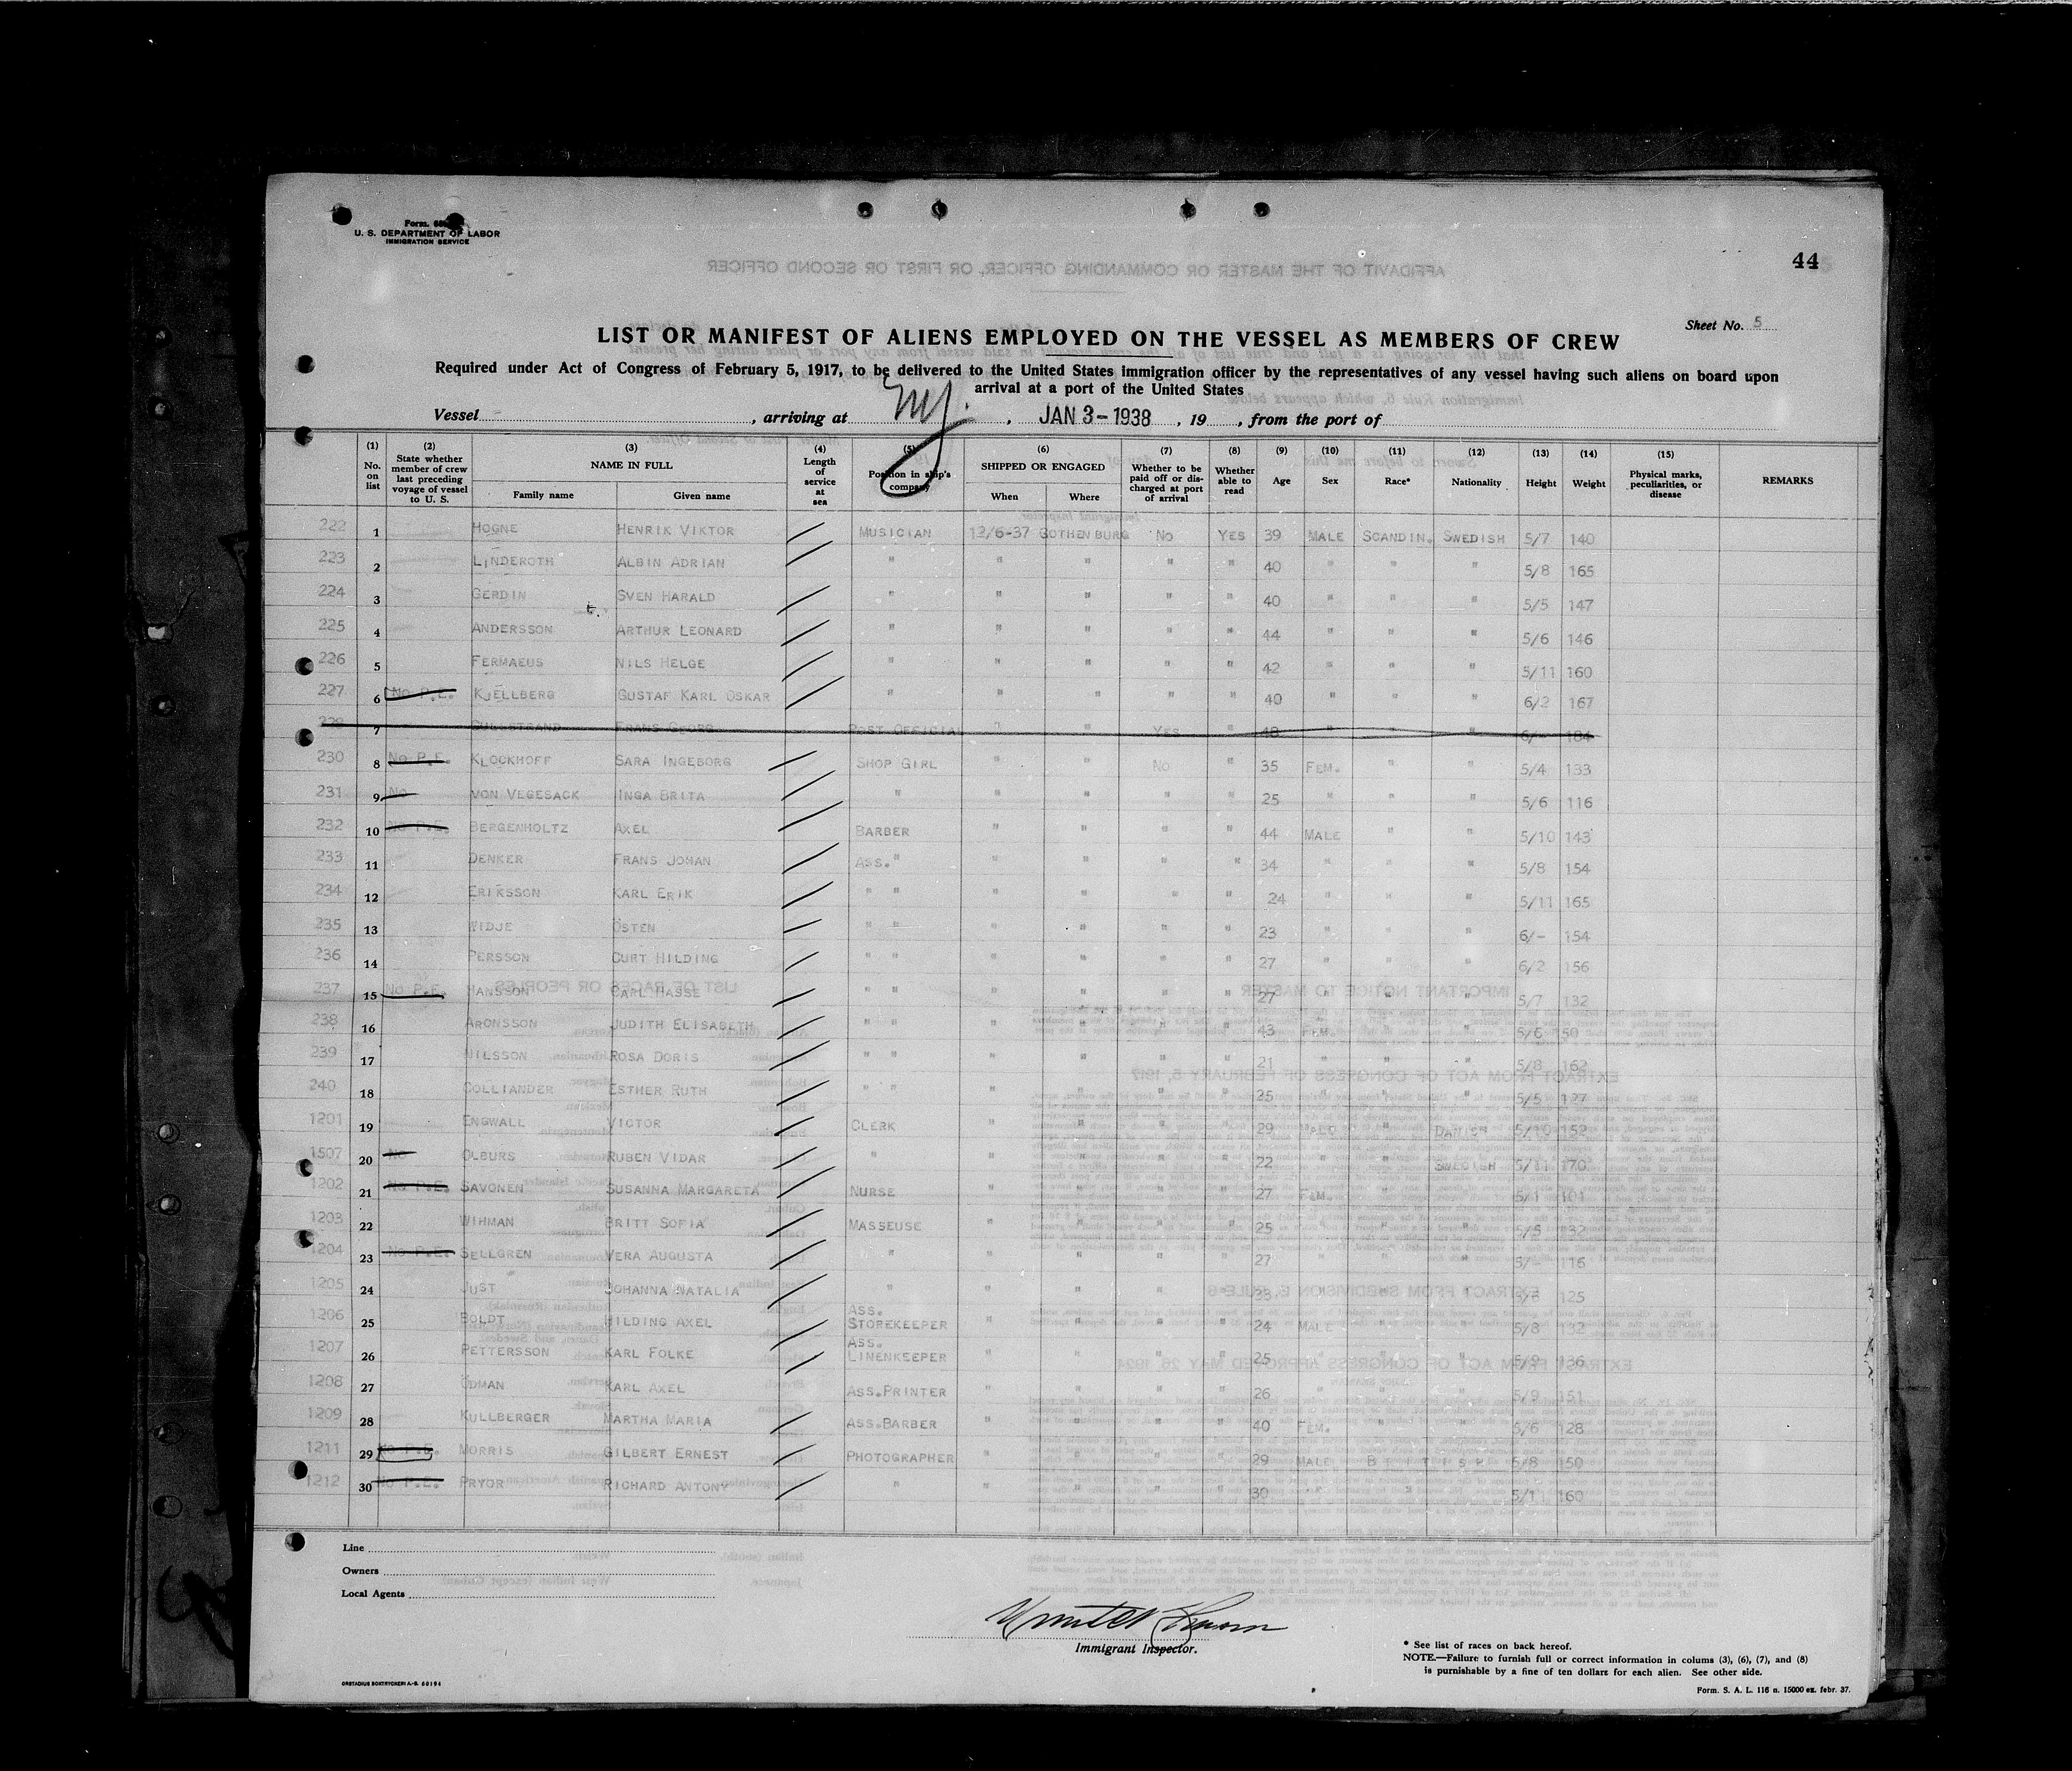 Form.
U. S. DEPARTMENT OF LABOR
IMMIGRATION SERVICE
44
Sheet No. 5
LIST OR MANIFEST OF ALIENS EMPLOYED ON THE VESSEL AS MEMBERS OF CREW
Required under Act of Congress of February 5, 1917, to be delivered to the United States immigration officer by the representatives of any vessel having such aliens on board upon
arrival at a port of the United States
Vessel , arriving at NY. , JAN 3-1938 , 19 , from the port of
(1) No. on list (2) State whether member of crew last preceding voyage of vessel to U. S. (3) NAME IN FULL Family name Given name (4) Length of service at sea (5) Position in ship's company (6) SHIPPED OR ENGAGED When Where (7) Whether to be paid off or discharged at port of arrival (8) Whether able to read (9) Age (10) Sex (11) Race* (12) Nationality (13) Height (14) Weight (15) Physical marks, peculiarities, or disease REMARKS
222 1 HOGNE HENRIK VIKTOR MUSICIAN 12/6-37 GOTHENBURG No YES 39 MALE SCANDIN. SWEDISH 5/7 140
223 2 LINDEROTH ALBIN ADRIAN " " " " " 40 " " " 5/8 165
224 3 GERDIN SVEN HARALD " " " " " 40 " " " 5/5 147
225 4 ANDERSSON ARTHUR LEONARD " " " " " 44 " " " 5/6 146
226 5 FERMAEUS NILS HELGE " " " " " 42 " " " 5/11 160
227 6 No P.E. KJELLBERG GUSTAF KARL OSKAR " " " " " 40 " " " 6/2 167
7 GULLSTRAND FRANS GEORG POST OFFICIAL " " YES " 48 " " " 6/- 184
230 8 No P.E. KLOCKHOFF SARA INGEBORG SHOP GIRL " " No " 35 FEM. " " 5/4 133
231 9 No VON VEGESACK INGA BRITA " " " " " 25 " " " 5/6 116
232 10 No P.E. BERGENHOLTZ AXEL BARBER " " " " 44 MALE " " 5/10 143
233 11 DENKER FRANS JOHAN ASS. " " " " " 34 " " " 5/8 154
234 12 ERIKSSON KARL ERIK " " " " " " 24 " " " 5/11 165
235 13 WIDJE ÖSTEN " " " " " " 23 " " " 6/- 154
236 14 PERSSON CURT HILDING " " " " " " 27 " " " 6/2 156
237 15 No P.E. HANSSON CARL HASSE " " " " " " 27 " " " 5/7 132
238 16 ARONSSON JUDITH ELISABETH " " " " " " 43 FEM. " " 5/6 50
239 17 NILSSON ROSA DORIS " " " " " " 21 " " " 5/8 162
240 18 COLLIANDER ESTHER RUTH " " " " " " 25 " " " 5/5 127
1201 19 ENGWALL VICTOR CLERK " " " " 29 MALE " DANISH 5/10 152
1507 20 No OLBURS RUBEN VIDAR " " " " " 22 " " SWEDISH 5/11 170
1202 21 No P.E. SAVONEN SUSANNA MARGARETA NURSE " " " " 27 FEM. " " 5/1 101
1203 22 WIHMAN BRITT SOFIA MASSEUSE " " " " 25 " " " 5/5 132
1204 23 No P.E. SELLGREN VERA AUGUSTA " " " " " 27 " " " 116
1205 24 JUST JOHANNA NATALIA " " " " " 23 " " " 5/6 125
1206 25 BOLDT HILDING AXEL ASS. STOREKEEPER " " " " 24 MALE " " 5/8 132
1207 26 PETTERSSON KARL FOLKE ASS. LINENKEEPER " " " " 25 " " " 5/9 136
1208 27 ÖDMAN KARL AXEL ASS.PRINTER " " " " 26 " " " 5/9 151
1209 28 KULLBERGER MARTHA MARIA ASS.BARBER " " " " 40 FEM. " " 5/6 128
1211 29 No P.E. MORRIS GILBERT ERNEST PHOTOGRAPHER " " " " 29 MALE BRITISH 5/8 150
1212 30 No P.E. PRYOR RICHARD ANTONY " " " " " 30 " " 5/11 160
Line
Owners
Local Agents
Immigrant Inspector.
* See list of races on back hereof.
NOTE.—Failure to furnish full or correct information in colums (3), (6), (7), and (8)
is punishable by a fine of ten dollars for each alien. See other side.
ORSTADIUS BOKTRYCKERI A.-B. 60194
Form. S. A. L. 116 n. 15000 ex. febr. 37.